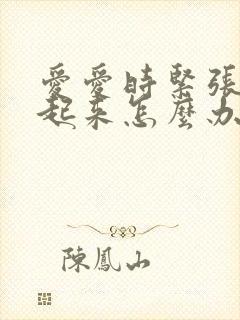 愛愛時緊張
起來怎麼办
陳鳳山